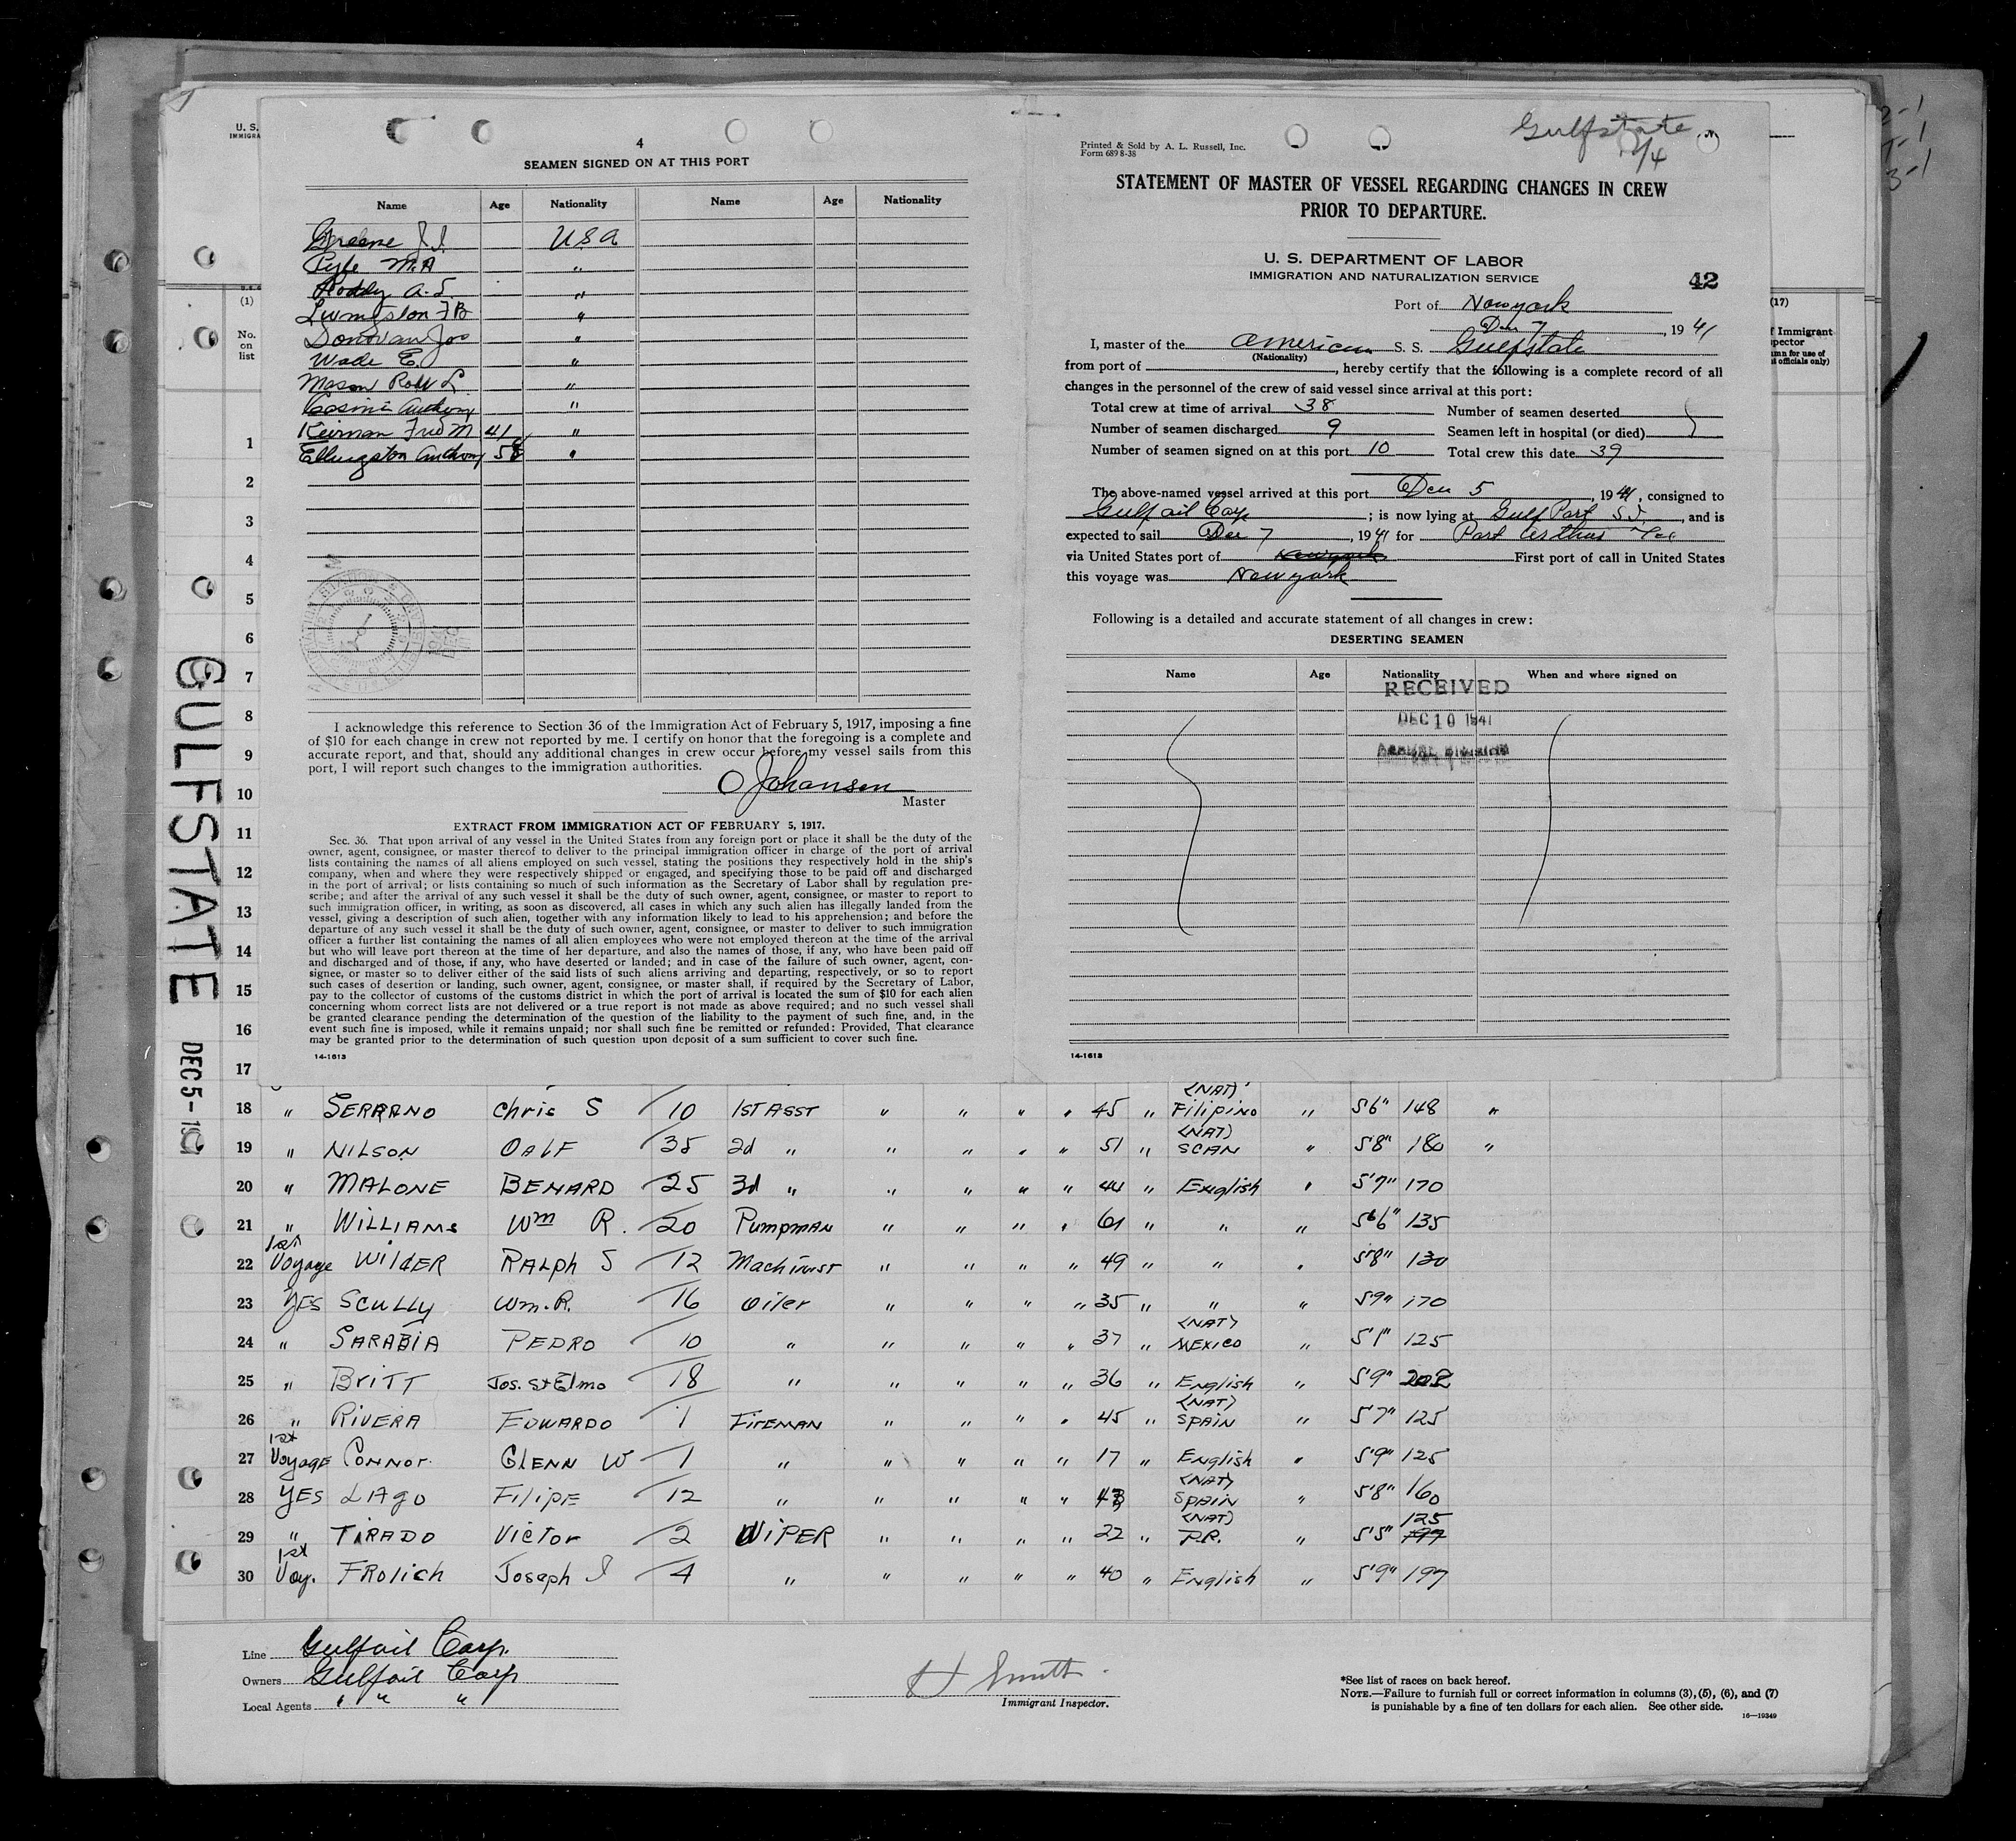 U. S.
IMMIGRA
4
SEAMEN SIGNED ON AT THIS PORT
Name Age Nationality Name Age Nationality
Greene J. J. USA
Pyle M. A "
Roddy A. S. "
Livingston F B "
Donovan Jos "
Wade E. "
Mason Robt L. "
Cosimi Anthony "
Keirnan Fred M 41 "
Ellingston Anthony "
I acknowledge this reference to Section 36 of the Immigration Act of February 5, 1917, imposing a fine
of $10 for each change in crew not reported by me. I certify on honor that the foregoing is a complete and
accurate report, and that, should any additional changes in crew occur before my vessel sails from this
port, I will report such changes to the immigration authorities.
O Johansen
Master
EXTRACT FROM IMMIGRATION ACT OF FEBRUARY 5, 1917.
Sec. 36. That upon arrival of any vessel in the United States from any foreign port or place it shall be the duty of the
owner, agent, consignee, or master thereof to deliver to the principal immigration officer in charge of the port of arrival
lists containing the names of all aliens employed on such vessel, stating the positions they respectively hold in the ship's
company, when and where they were respectively shipped or engaged, and specifying those to be paid off and discharged
in the port of arrival; or lists containing so much of such information as the Secretary of Labor shall by regulation pre-
scribe; and after the arrival of any such vessel it shall be the duty of such owner, agent, consignee, or master to report to
such immigration officer, in writing, as soon as discovered, all cases in which any such alien has illegally landed from the
vessel, giving a description of such alien, together with any information likely to lead to his apprehension; and before the
departure of any such vessel it shall be the duty of such owner, agent, consignee, or master to deliver to such immigration
officer a further list containing the names of all alien employees who were not employed thereon at the time of the arrival
but who will leave port thereon at the time of her departure, and also the names of those, if any, who have been paid off
and discharged and of those, if any, who have deserted or landed; and in case of the failure of such owner, agent, con-
signee, or master so to deliver either of the said lists of such aliens arriving and departing, respectively, or so to report
such cases of desertion or landing, such owner, agent, consignee, or master shall, if required by the Secretary of Labor,
pay to the collector of customs of the customs district in which the port of arrival is located the sum of $10 for each alien
concerning whom correct lists are not delivered or a true report is not made as above required; and no such vessel shall
be granted clearance pending the determination of the question of the liability to the payment of such fine, and, in the
event such fine is imposed, while it remains unpaid; nor shall such fine be remitted or refunded: Provided, That clearance
may be granted prior to the determination of such question upon deposit of a sum sufficient to cover such fine.
14-1613
Gulfstate
12/4
Printed & Sold by A. L. Russell, Inc.
Form 689 8-38
STATEMENT OF MASTER OF VESSEL REGARDING CHANGES IN CREW
PRIOR TO DEPARTURE.
U. S. DEPARTMENT OF LABOR
IMMIGRATION AND NATURALIZATION SERVICE
42
Port of New york
Dec 7, 1941
I, master of the American S. S. Gulfstate
(Nationality)
from port of , hereby certify that the following is a complete record of all
changes in the personnel of the crew of said vessel since arrival at this port:
Total crew at time of arrival 38 Number of seamen deserted
Number of seamen discharged 9 Seamen left in hospital (or died)
Number of seamen signed on at this port 10 Total crew this date 39
The above-named vessel arrived at this port Dec 5, 1941, consigned to
Gulf oil Corp ; is now lying at Gulf Port S I., and is
expected to sail Dec 7, 1941 for Port Arthur Tex
via United States port of New york First port of call in United States
this voyage was New york
Following is a detailed and accurate statement of all changes in crew:
DESERTING SEAMEN
Name Age Nationality When and where signed on
RECEIVED
DEC 10 1941
14-1613
(17)
f Immigrant
pector
mn for use of
t officials only)
2-1
1-1
3-1
GULFSTATE DEC 5-
(1)
No.
on
list
1
2
3
4
5
6
7
8
9
10
11
12
13
14
15
16
17
18 " SERRANO Chris S 10 1ST ASST " " " " 45 " (NAT) Filipino " 5'6" 148 "
19 " NILSON OALF 35 2d " " " " " 51 " (NAT) SCAN " 5'8" 180 "
20 " MALONE BENARD 25 3d " " " " " 44 " English " 5'7" 170
21 " WILLIAMS Wm R. 20 Pumpman " " " " 61 " " " 5'6" 135
22 1st Voyage WILDER RALph S 12 Machinist " " " " 49 " " " 5'8" 130
23 YES SCULLY Wm. R. 16 Oiler " " " " 35 " " " 5'9" 170
24 " SARABIA PEDRO 10 " " " " " 37 " (NAT) MEXICO " 5'1" 125
25 " BRITT Jos. St Elmo 18 " " " " " 36 " English " 5'9" 202
26 " RIVERA EDWARDO 1 FIREMAN " " " " 45 " (NAT) SPAIN " 5'7" 125
27 1st Voyage Connor. GLENN W 1 " " " " " 17 " English " 5'9" 125
28 YES LAgo FilipE 12 " " " " " 43 (NAT) SPAIN " 5'8" 160
29 " TIRADO Victor 2 WIPER " " " " 22 " (NAT) P.R. " 5'5" 125
30 1st Voy. FROlich Joseph J 4 " " " " " 40 " English " 5'9" 197
Line Gulf oil Corp.
Owners Gulf oil Corp
Local Agents " " "
H Smith
Immigrant Inspector.
*See list of races on back hereof.
NOTE.—Failure to furnish full or correct information in columns (3), (5), (6), and (7)
is punishable by a fine of ten dollars for each alien. See other side.
16—19349